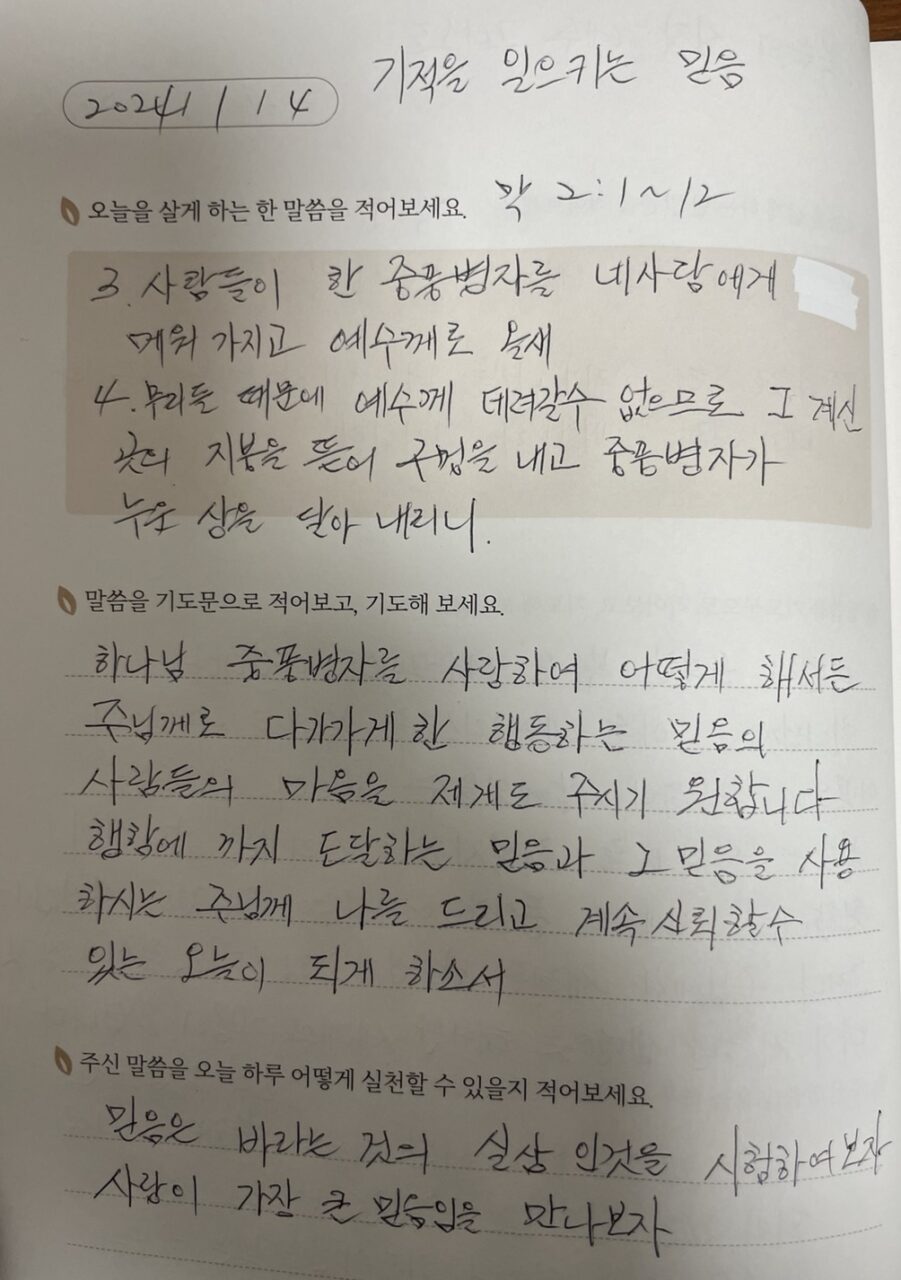 기적을 일으키는 믿음
2024 1 / 14
오늘을 살게 하는 한 말씀을 적어보세요. 막 2:1~12
3. 사람들이 한 중풍병자를 네사람에게
메워 가지고 예수께로 올새
4. 무리들 때문에 예수께 데려갈수 없으므로 그 계신
곳의 지붕을 뜯어 구멍을 내고 중풍병자가
누운 상을 달아 내리니.
말씀을 기도문으로 적어보고, 기도해 보세요.
하나님 중풍병자를 사랑하여 어떻게 해서든
주님께로 다가가게 한 행동하는 믿음의
사람들의 마음을 제게도 주시기 원합니다
행함에 까지 도달하는 믿음과 그 믿음을 사용
하시는 주님께 나를 드리고 계속 신뢰할수
있는 오늘이 되게 하소서
주신 말씀을 오늘 하루 어떻게 실천할 수 있을지 적어보세요.
믿음은 바라는 것의 실상 인것을 시험하여보자
사랑이 가장 큰 믿음임을 만나보자